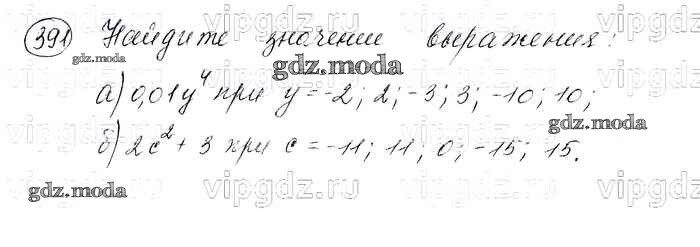 391 Найдите значении выражения:
а) 0,01y⁴ при y = -2; 2; -3; 3; -10; 10;
б) 2c² + 3 при c = -11; 11; 0; -15; 15.
gdz.moda
gdz.moda
gdz.moda
gdz.moda
vipgdz.ru vipgdz.ru vipgdz.ru
vipgdz.ru vipgdz.ru vipgdz.ru
vipgdz.ru vipgdz.ru vipgdz.ru